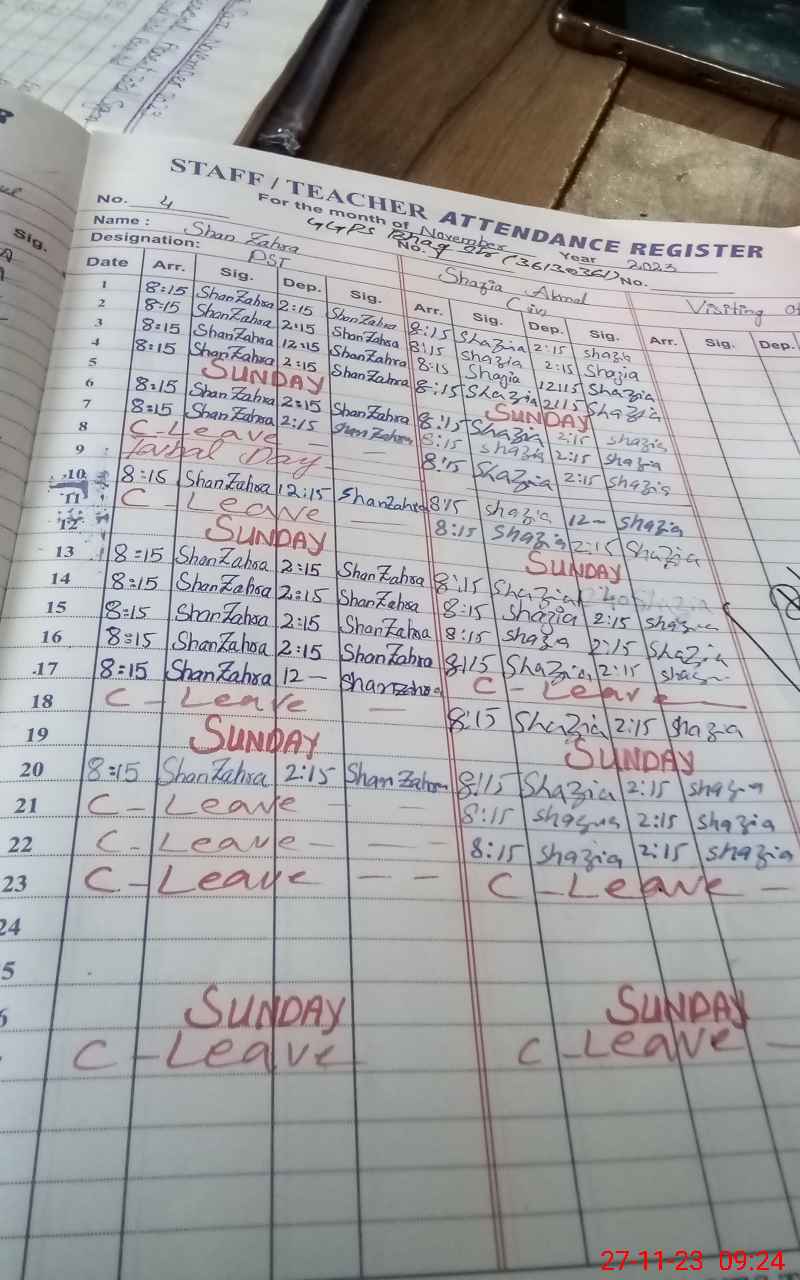 STAFF / TEACHER ATTENDANCE REGISTER
For the month of November Year 2023
No. 4 GGPS No. (36130361) No.
Name : Shan Zahra Shazia Akmal Visiting
Designation: PST Civ
Date Arr. Sig. Dep. Sig. Arr. Sig. Dep. Sig. Arr. Sig. Dep.
1 8:15 ShanZahra 2:15 ShanZahra 8:15 Shazia 2:15 Shazia
2 8:15 ShanZahra 2:15 ShanZahra 8:15 Shazia 2:15 Shazia
3 8:15 ShanZahra 12:15 ShanZahra 8:15 Shazia 12:15 Shazia
4 8:15 ShanZahra 2:15 ShanZahra 8:15 Shazia 2:15 Shazia
5 SUNDAY SUNDAY
6 8:15 ShanZahra 2:15 ShanZahra 8:15 Shazia 2:15 Shazia
7 8:15 ShanZahra 2:15 ShanZahra 8:15 Shazia 2:15 Shazia
8 C-Leave — — 8:15 Shazia 2:15 Shazia
9 Day
10 8:15 ShanZahra 12:15 ShanZahra 8:15 Shazia 12— Shazia
11 C-Leave — 8:15 Shazia 2:15 Shazia
12 SUNDAY SUNDAY
13 8:15 ShanZahra 2:15 ShanZahra 8:15 Shazia
14 8:15 ShanZahra 2:15 ShanZahra 8:15 Shazia 2:15 Shazia
15 8:15 ShanZahra 2:15 ShanZahra 8:15 Shazia 2:15 Shazia
16 8:15 ShanZahra 2:15 ShanZahra 8:15 Shazia 2:15 Shazia
17 8:15 ShanZahra 12— ShanZahra C-Leave —
18 C-Leave — 8:15 Shazia 2:15 Shazia
19 SUNDAY SUNDAY
20 8:15 ShanZahra 2:15 ShanZahra 8:15 Shazia 2:15 Shazia
21 C-Leave — — 8:15 Shazia 2:15 Shazia
22 C-Leave — — 8:15 Shazia 2:15 Shazia
23 C-Leave — — C-Leave —
24
5
SUNDAY SUNDAY
C-Leave C-Leave —
27-11-23 09:24